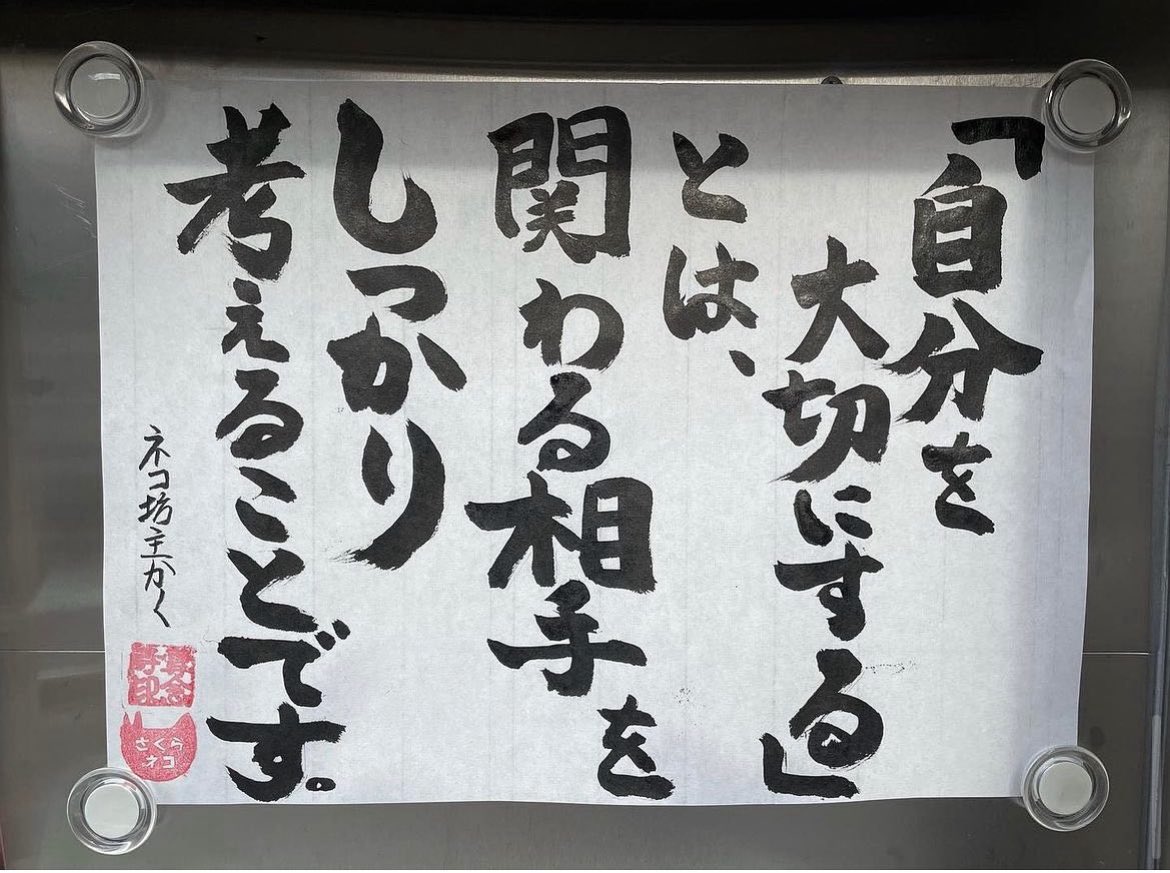 「自分を
大切にする」
とは、
関わる相手を
しっかり
考えることです。
ネコ坊主かく
さくら
ネコ